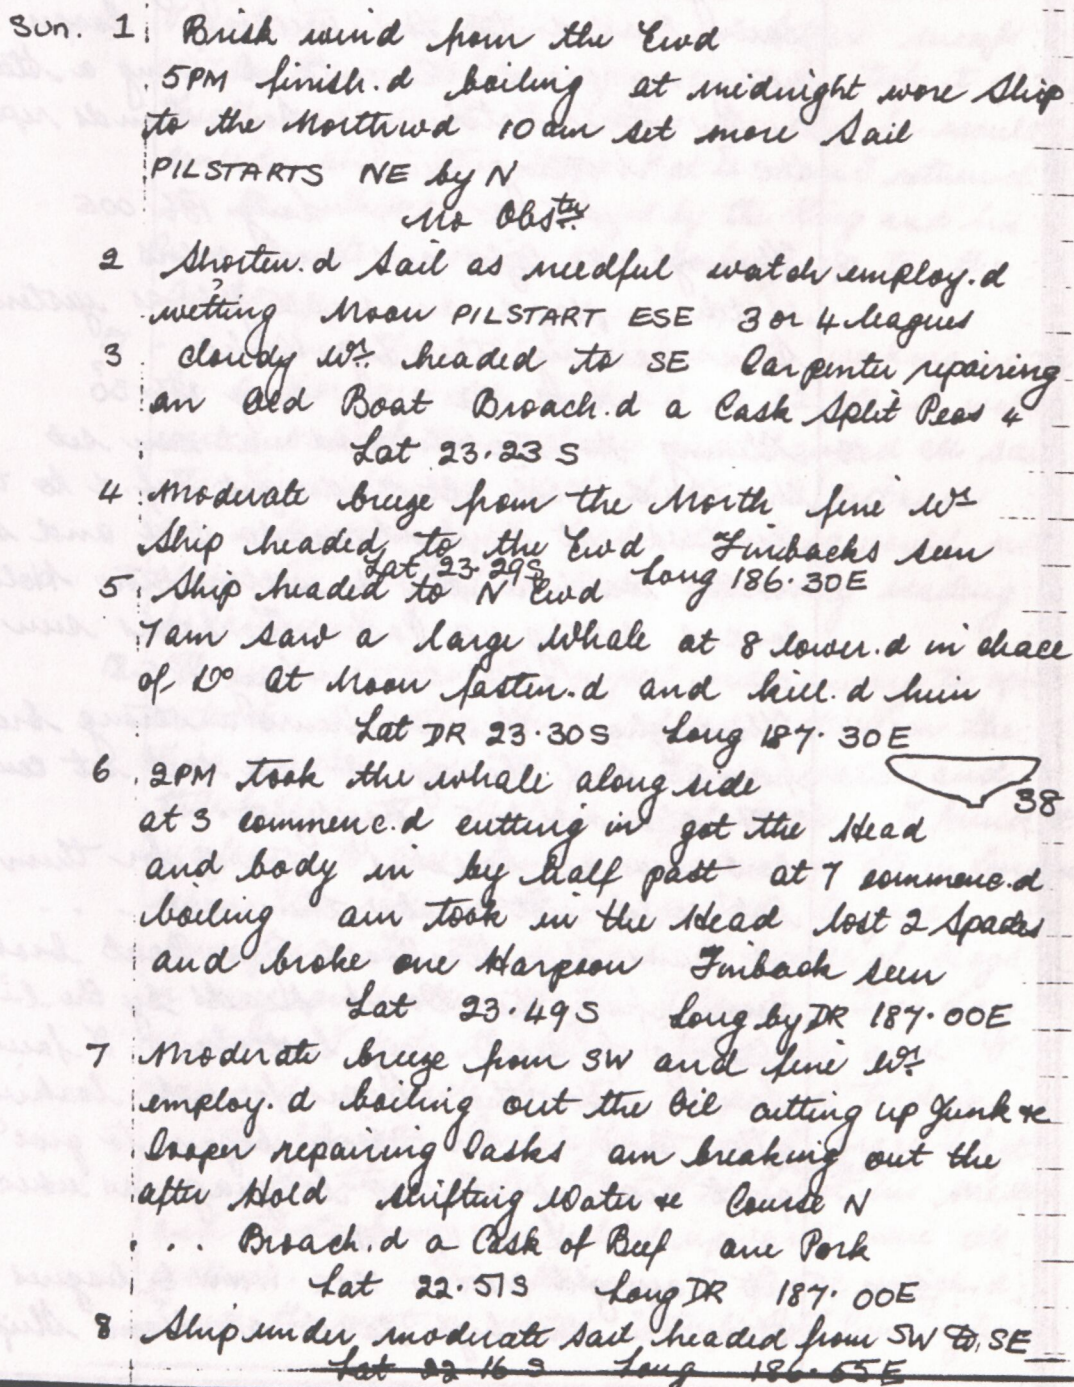 Sun. 1 Brisk wind from the Ewd
5PM finish.d boiling at midnight wore Ship
to the Northwd 10am set more Sail
PILSTARTS NE by N
No Obs.tn
2 Shorten.d Sail as needful watch employ.d
?
wetting Noon PILSTART ESE 3 or 4 leagues
3 cloudy Wr. headed to SE Carpenter repairing
an Old Boat Broach.d a Cask Split Peas 4
Lat 23.23 S
4 Moderate breeze from the North fine Wr
Ship headed to the Ewd Finbacks seen
Lat 23.29S Long 186.30E
5 Ship headed to N Ewd
7am saw a large Whale at 8 lower.d in chace
of Do at Noon fasten.d and kill.d him
Lat DR 23.30S Long 187.30E
6 2PM took the whale along side
38
at 3 commenc.d cutting in got the Head
and body in by half past at 7 commenc.d
boiling am took in the Head lost 2 Spades
and broke one Harpoon Finback seen
Lat 23.49S Long by DR 187.00E
7 Moderate breeze from SW and fine Wr.
employ.d boiling out the Oil cutting up Junk &c
Cooper repairing Casks am breaking out the
after Hold shifting Water &c Course N
. . . Broach.d a Cask of Beef one Pork
Lat 22.51S Long DR 187.00E
8 Ship under moderate sail headed from SW to SE
Lat 22 16 S Long 186.55E